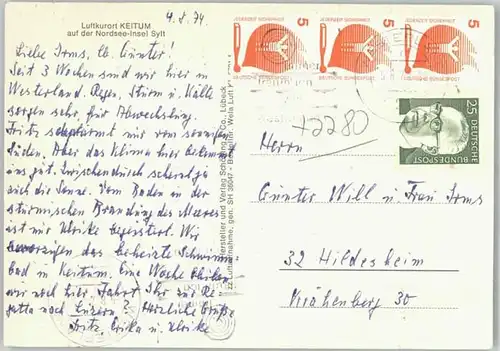 Luftkurort KEITUM
auf der Nordsee-Insel Sylt
4.8.74
Liebe Irms, lb. Günter!
Seit 3 Wochen sind wir hier in
Westerland. Regen, Sturm u. Kälte
sorgen sehr für Abwechslung.
Fritz schwärmt nur vom sonnigen
Süden. Aber das Klima hier bekommt
uns gut. Zwischendurch scheint ja
auch die Sonne. Vom Baden in der
stürmischen Brandung des Meeres
ist nur Ulrike begeistert. Wir
bevorzugen das beheizte Schwimm-
bad in Keitum. Eine Woche bleiben
wir noch hier. Fahrt Ihr zur Re-
gatta nach Luzern? Herzliche Grüße
Fritz, Erika u. Ulrike
Hersteller und Verlag Schöning & Co., Lübeck
Luftaufnahme, gen. SH
5
5
5
25
DEUTSCHE
BUNDESPOST
+2280
Herrn
Günter Will u. Frau Irms
32 Hildesheim
Krähenberg 30